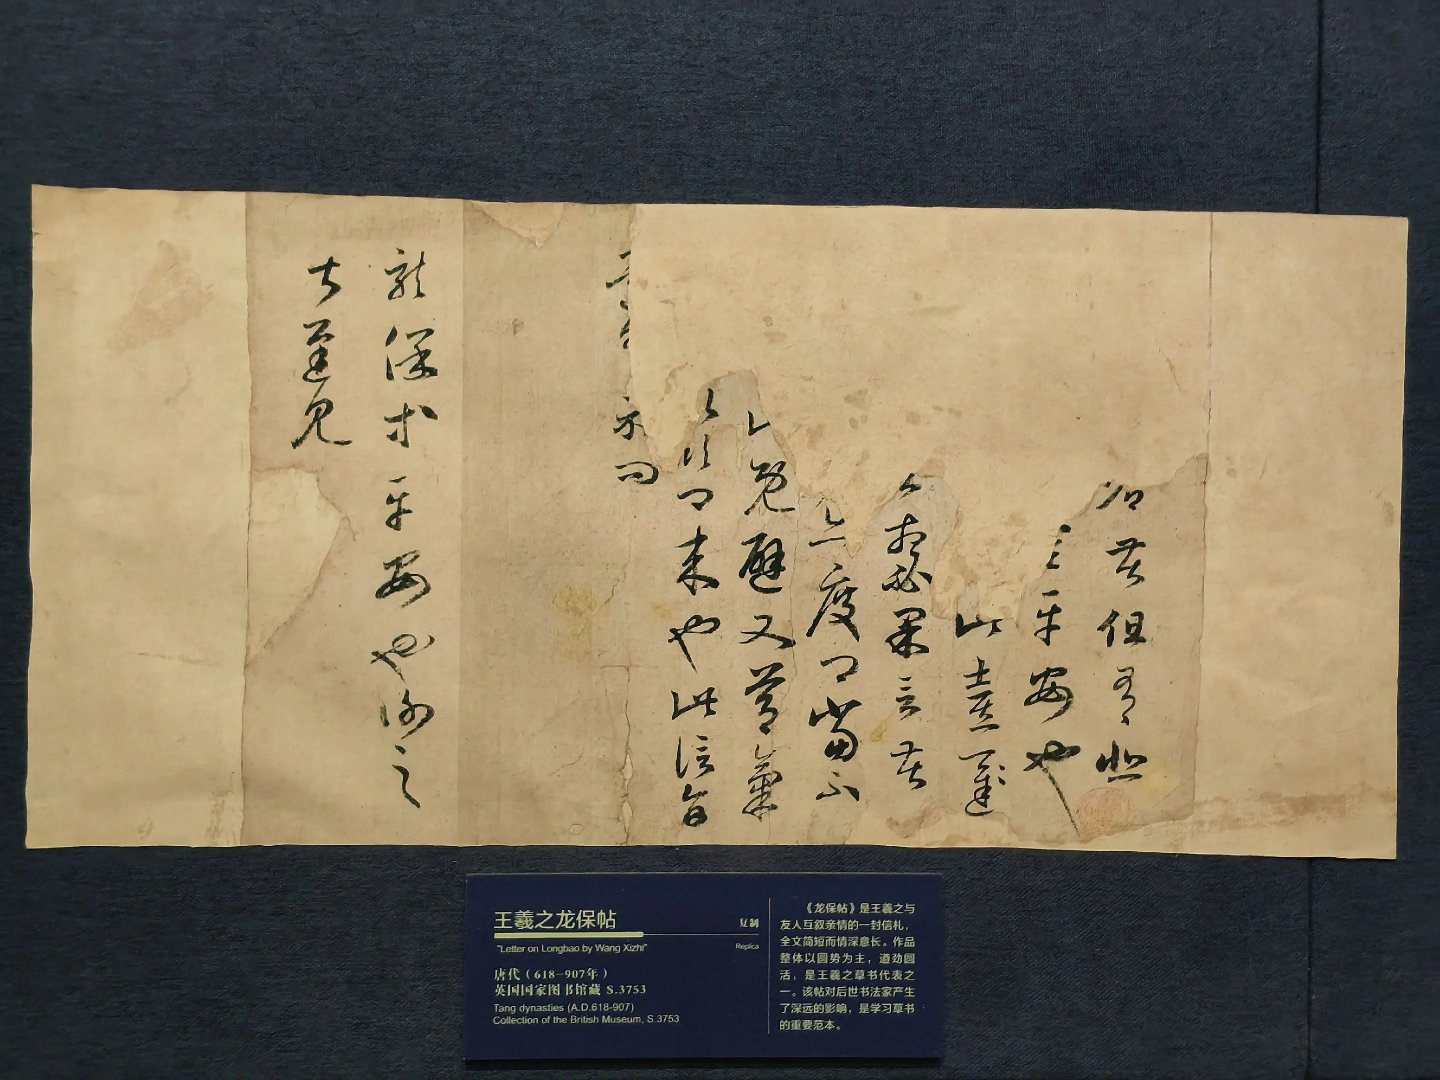 苦但有悲
悉平安也
此喜遲
想必果言苦
亦度卿當不
既避又節氣
以欣卿來也此信旨
示問
龍保等平安也謝之
甚遲見
王羲之龙保帖
复制
"Letter on Longbao by Wang Xizhi"
Replica
唐代（618-907年）
英国国家图书馆藏 S.3753
Tang dynasties (A.D.618-907)
Collection of the British Museum, S.3753
《龙保帖》是王羲之与
友人互叙亲情的一封信札，
全文简短而情深意长。作品
整体以圆势为主，遒劲圆
活，是王羲之草书代表之
一。该帖对后世书法家产生
了深远的影响，是学习草书
的重要范本。